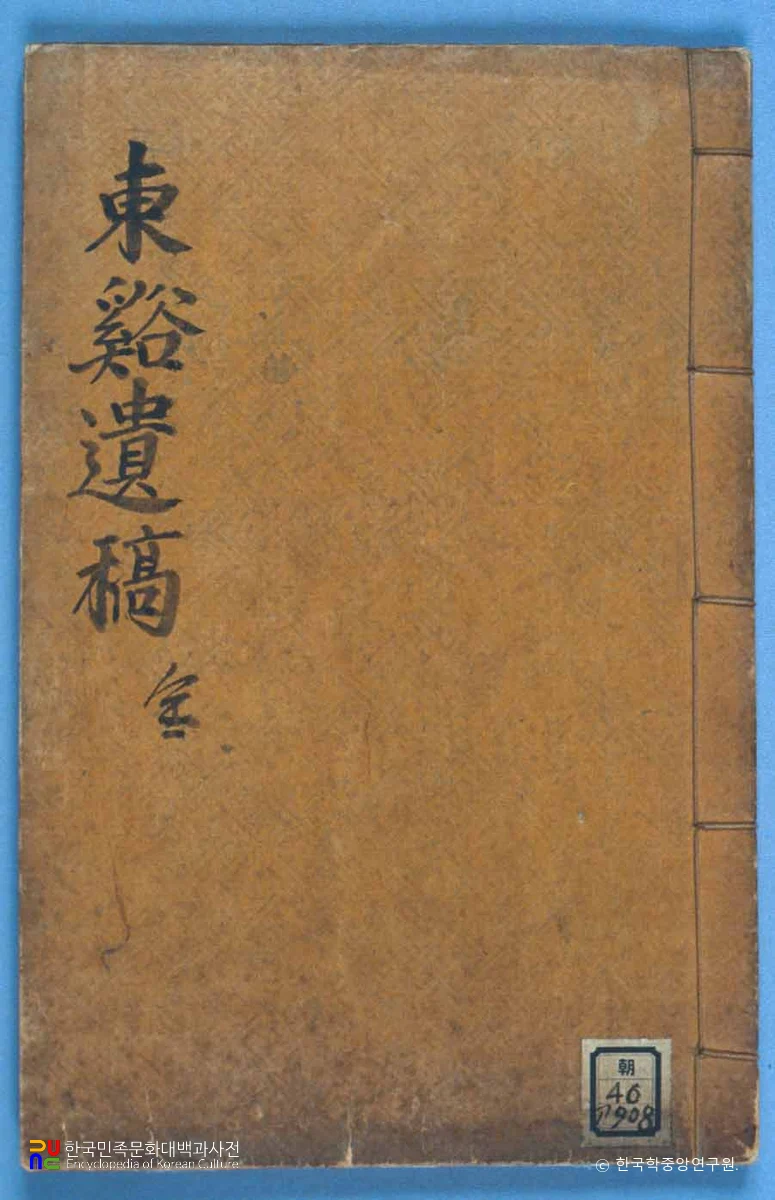 東谿遺稿 全
朝
46
가908
한국민족문화대백과사전
Encyclopedia of Korean Culture
© 한국학중앙연구원.